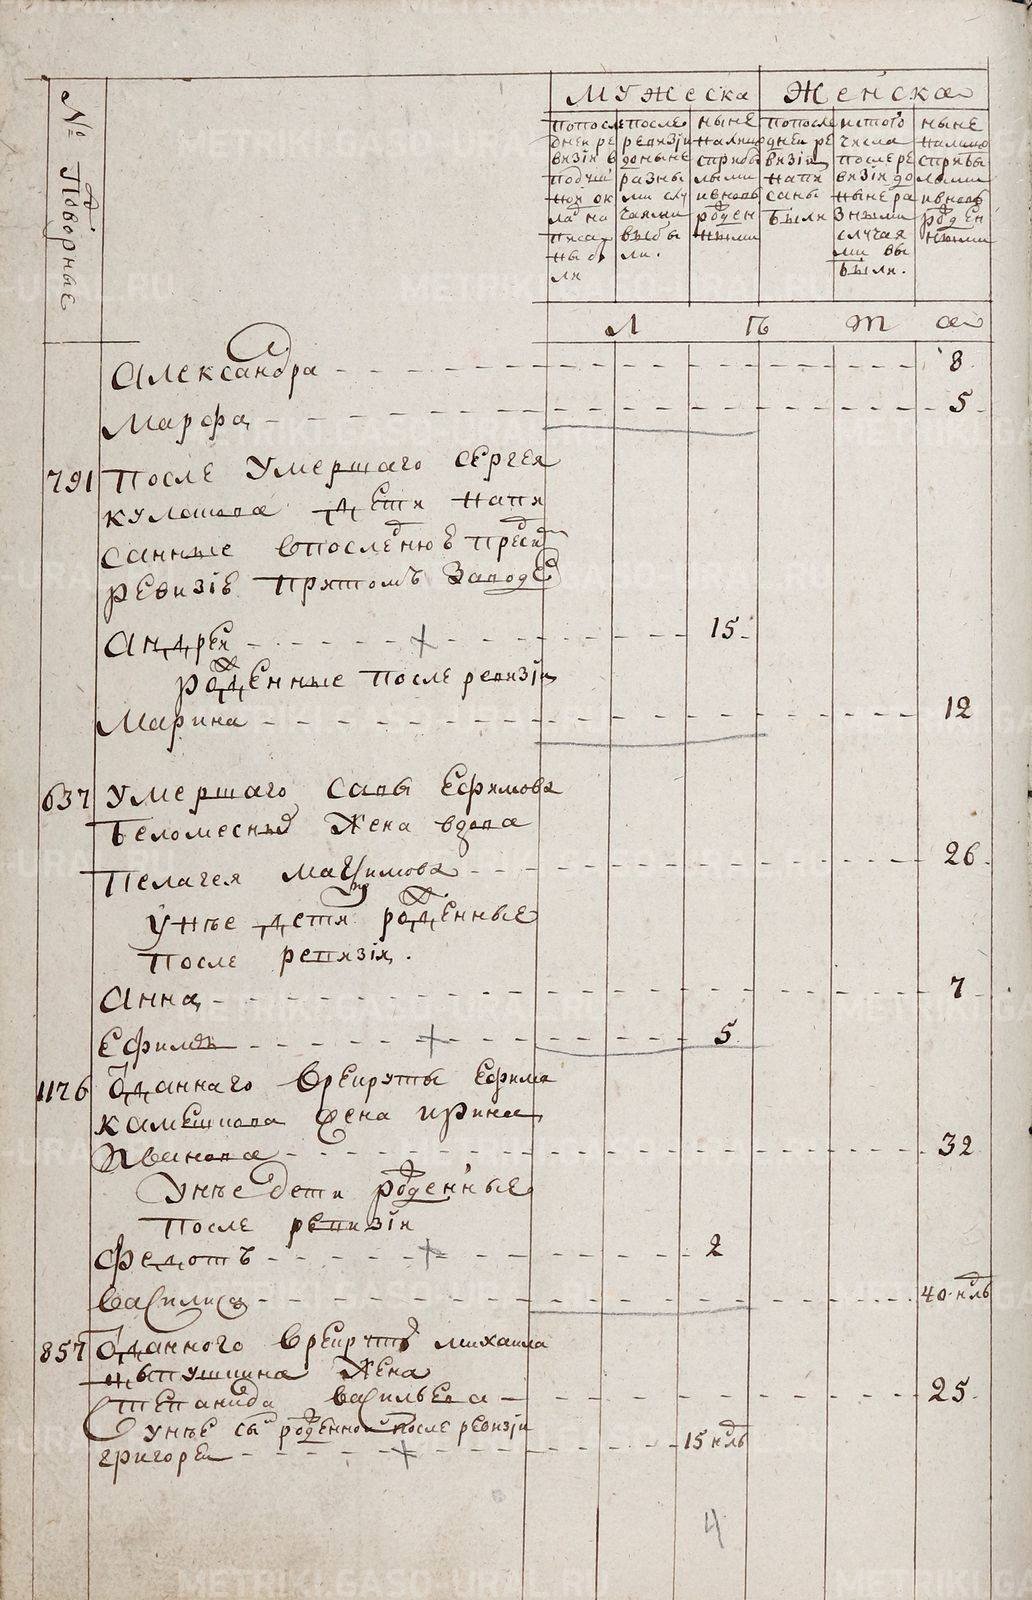 № Подворные
Мужеска
Женска
По последней ревизии в подушной оклад написаны были
После ревизіи доныне разными случаями выбыли.
Ныне налицо с прибылыми и вновь рожденными
По последней ревизіи написаны были
Ис того числа после ревизіи до ныне разными случаями выбыли.
Ныне налицо с прибылыми и вновь рожденными
Л Ѣ т а
Александра 8
Марфа 5
791 После Умершаго Сергея
дети напи
санные в последнюю пред
ревизіе при томъ Заводе
Андреи + 15
рожденные после ревизіи
Марина 12
637 Умершаго Савы Ефимова
Беломесных Жена вдова
Пелагея Маѯимова 26
У нѣе дети рожденные
после ревизіи.
Анна 7
Ефимъ + 5
1176 Отданнаго в рекруты Ефима
Жена Ирина
Иванова 32
У нѣе дети рожденные
после ревизіи
Федотъ + 2
Василиса 40 н дль
857 Отданного в рекруты Михаила
Жена
Степанида Васильева 25
У нѣе сынъ рожденной после ревизіи
Григореи + 15 н дль
4
METRIKI.GASO-URAL.RU